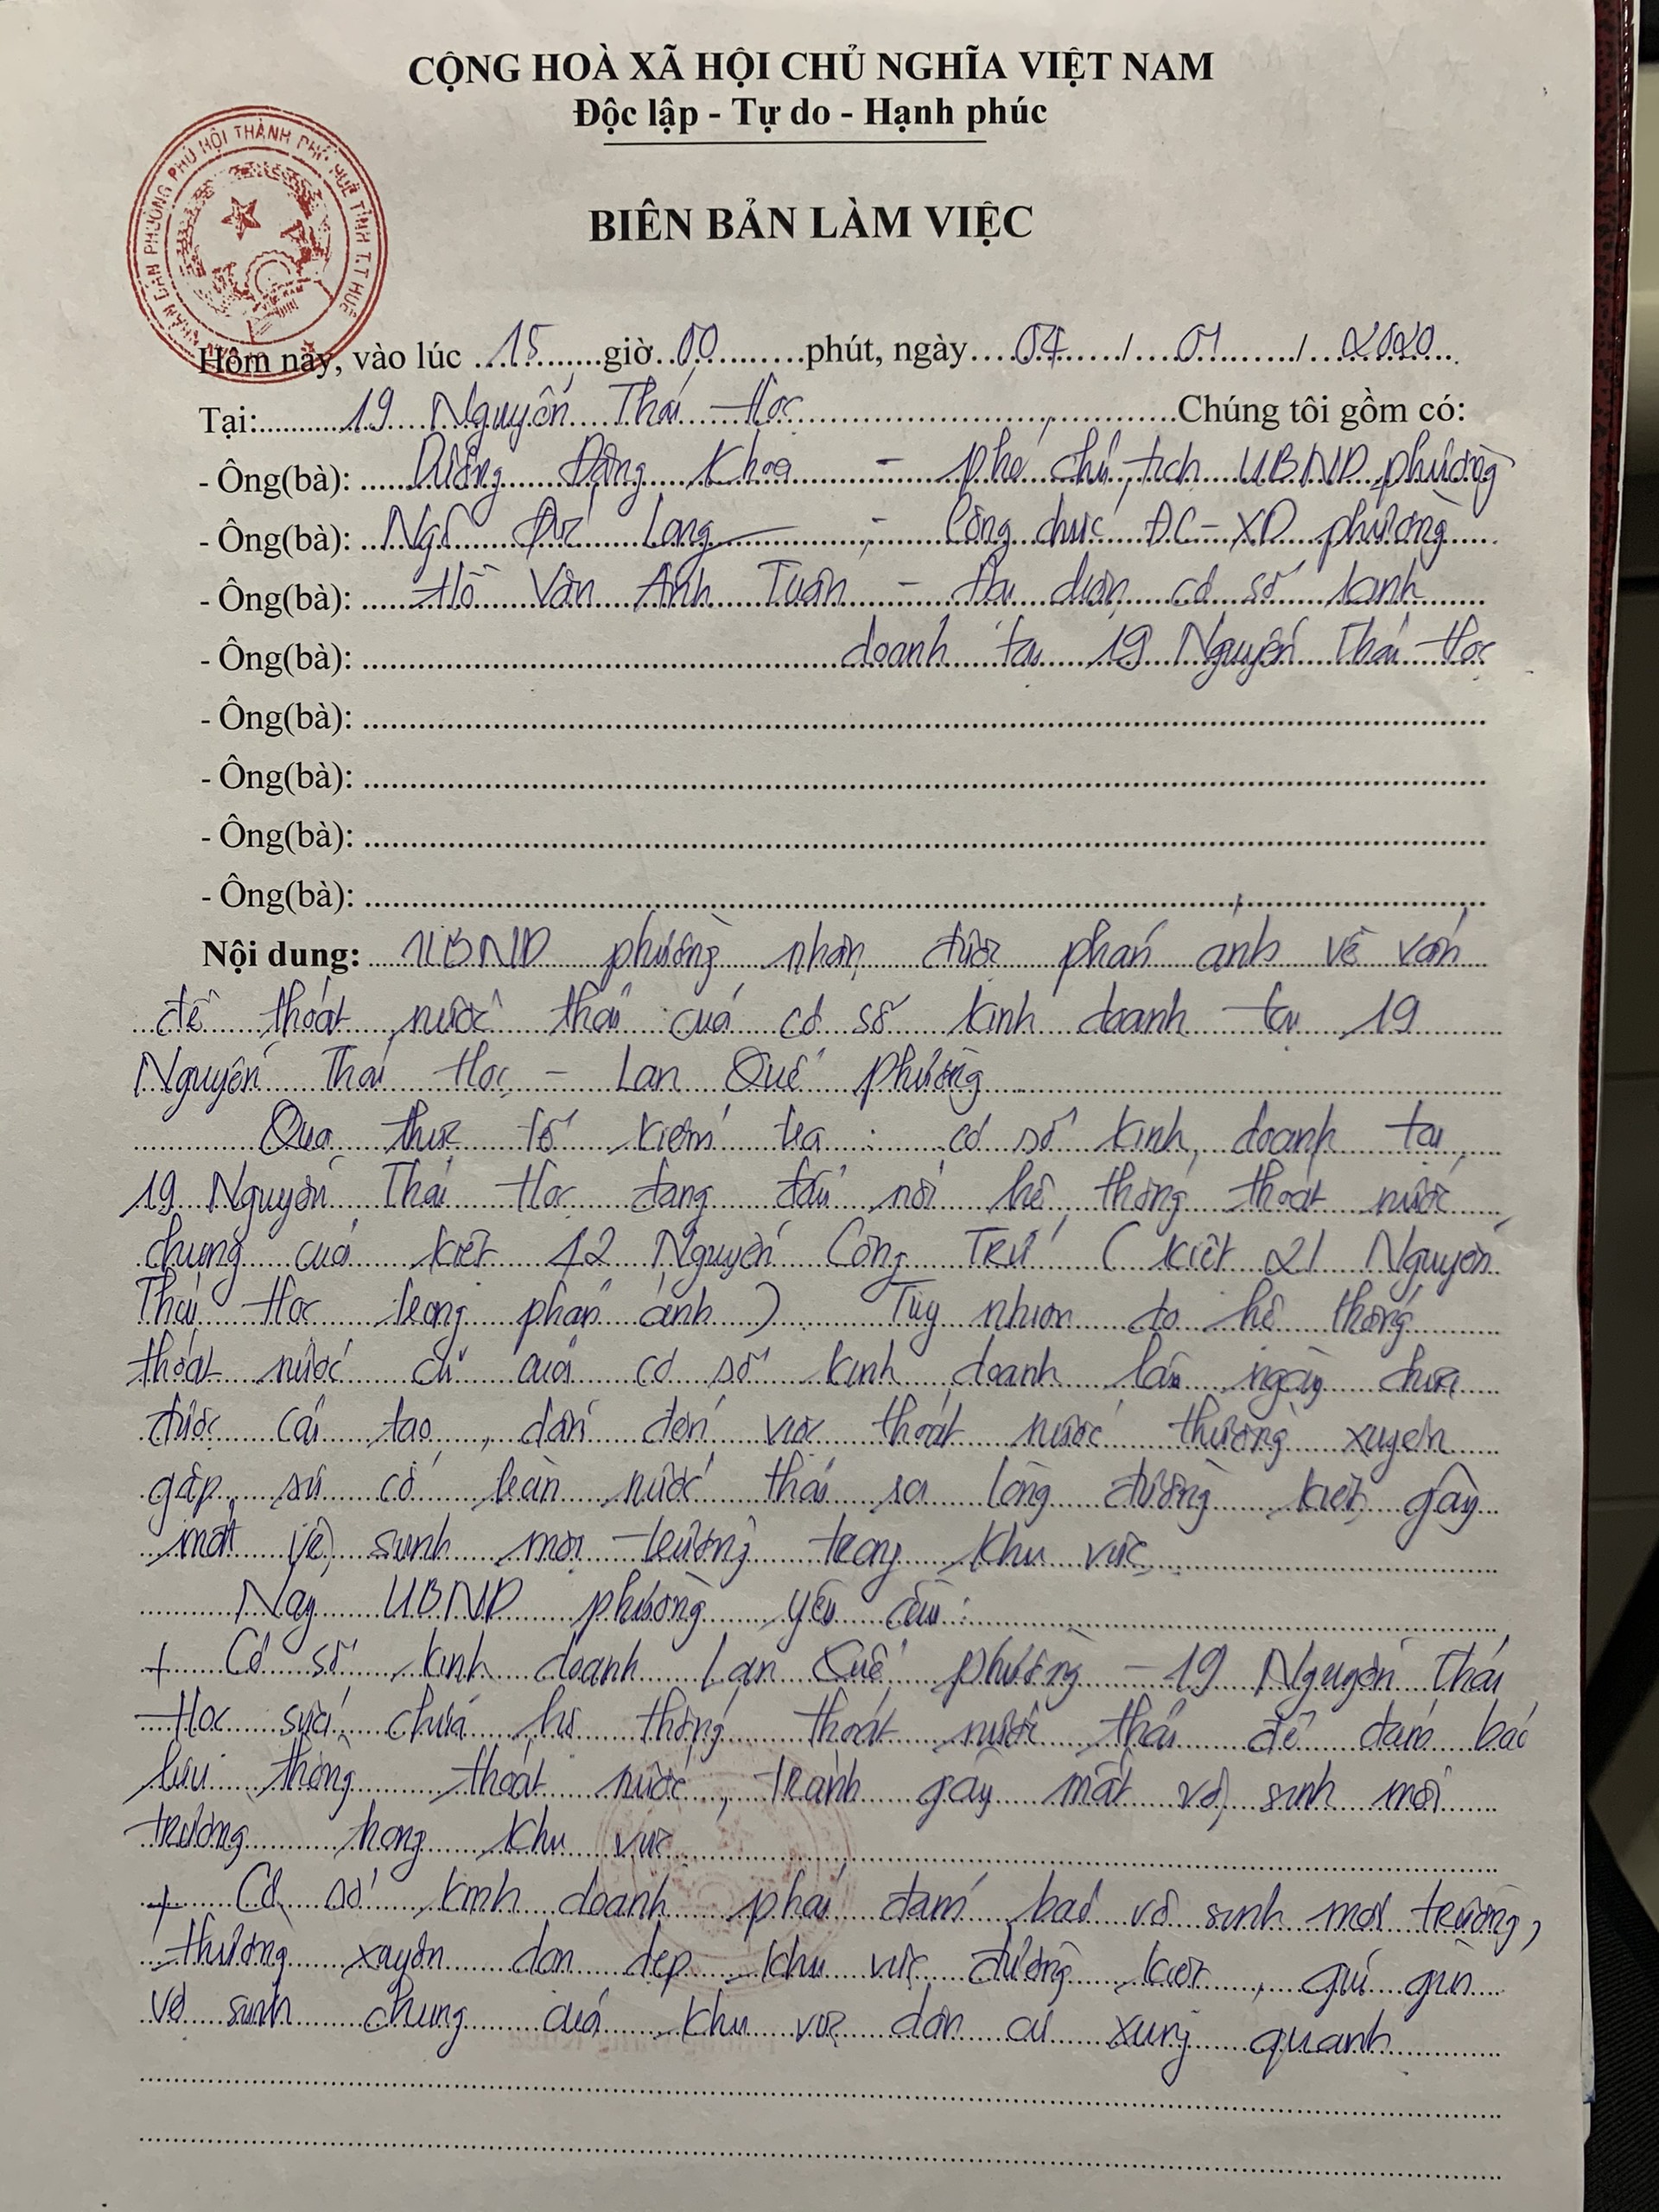 CỘNG HOÀ XÃ HỘI CHỦ NGHĨA VIỆT NAM
Độc lập - Tự do - Hạnh phúc
NHÂN DÂN PHƯỜNG PHÚ HỘI THÀNH PHỐ HUẾ TỈNH T.T HUẾ
BIÊN BẢN LÀM VIỆC
Hôm nay, vào lúc 15 giờ 00 phút, ngày 07 / 01 / 2020
Tại: 19 Nguyễn Thái Học Chúng tôi gồm có:
- Ông(bà): Dương Đăng Khoa - phó chủ tịch UBND phường
- Ông(bà): Ngô Đức Long - Công chức ĐC-XD phường
- Ông(bà): Hồ Văn Anh Tuấn - Đại diện cơ sở kinh
- Ông(bà): doanh tại 19 Nguyễn Thái Học
- Ông(bà):
- Ông(bà):
- Ông(bà):
- Ông(bà):
Nội dung: UBND phường nhận được phản ánh về vấn
đề thoát nước thải của cơ sở kinh doanh tại 19
Nguyễn Thái Học - Lan Quế phường
Qua thực tế kiểm tra : cơ sở kinh doanh tại
19 Nguyễn Thái Học đang đấu nối hệ thống thoát nước
chung của kiệt 12 Nguyễn Công Trứ ( kiệt 21 Nguyễn
Thái Học trong phản ánh ) Tuy nhiên do hệ thống
thoát nước cũ của cơ sở kinh doanh lâu ngày chưa
được cải tạo, dẫn đến việc thoát nước thường xuyên
gặp sự cố tràn nước thải ra lòng đường kiệt gây
mất vệ sinh môi trường trong khu vực
Nay UBND phường yêu cầu :
+ Cơ sở kinh doanh Lan Quế phường - 19 Nguyễn Thái
Học sửa chữa hệ thống thoát nước thải để đảm bảo
lưu thông thoát nước, tránh gây mất vệ sinh môi
trường trong khu vực
+ Cơ sở kinh doanh phải đảm bảo vệ sinh môi trường,
thường xuyên dọn dẹp khu vực đường kiệt, giữ gìn
vệ sinh chung của khu vực dân cư xung quanh